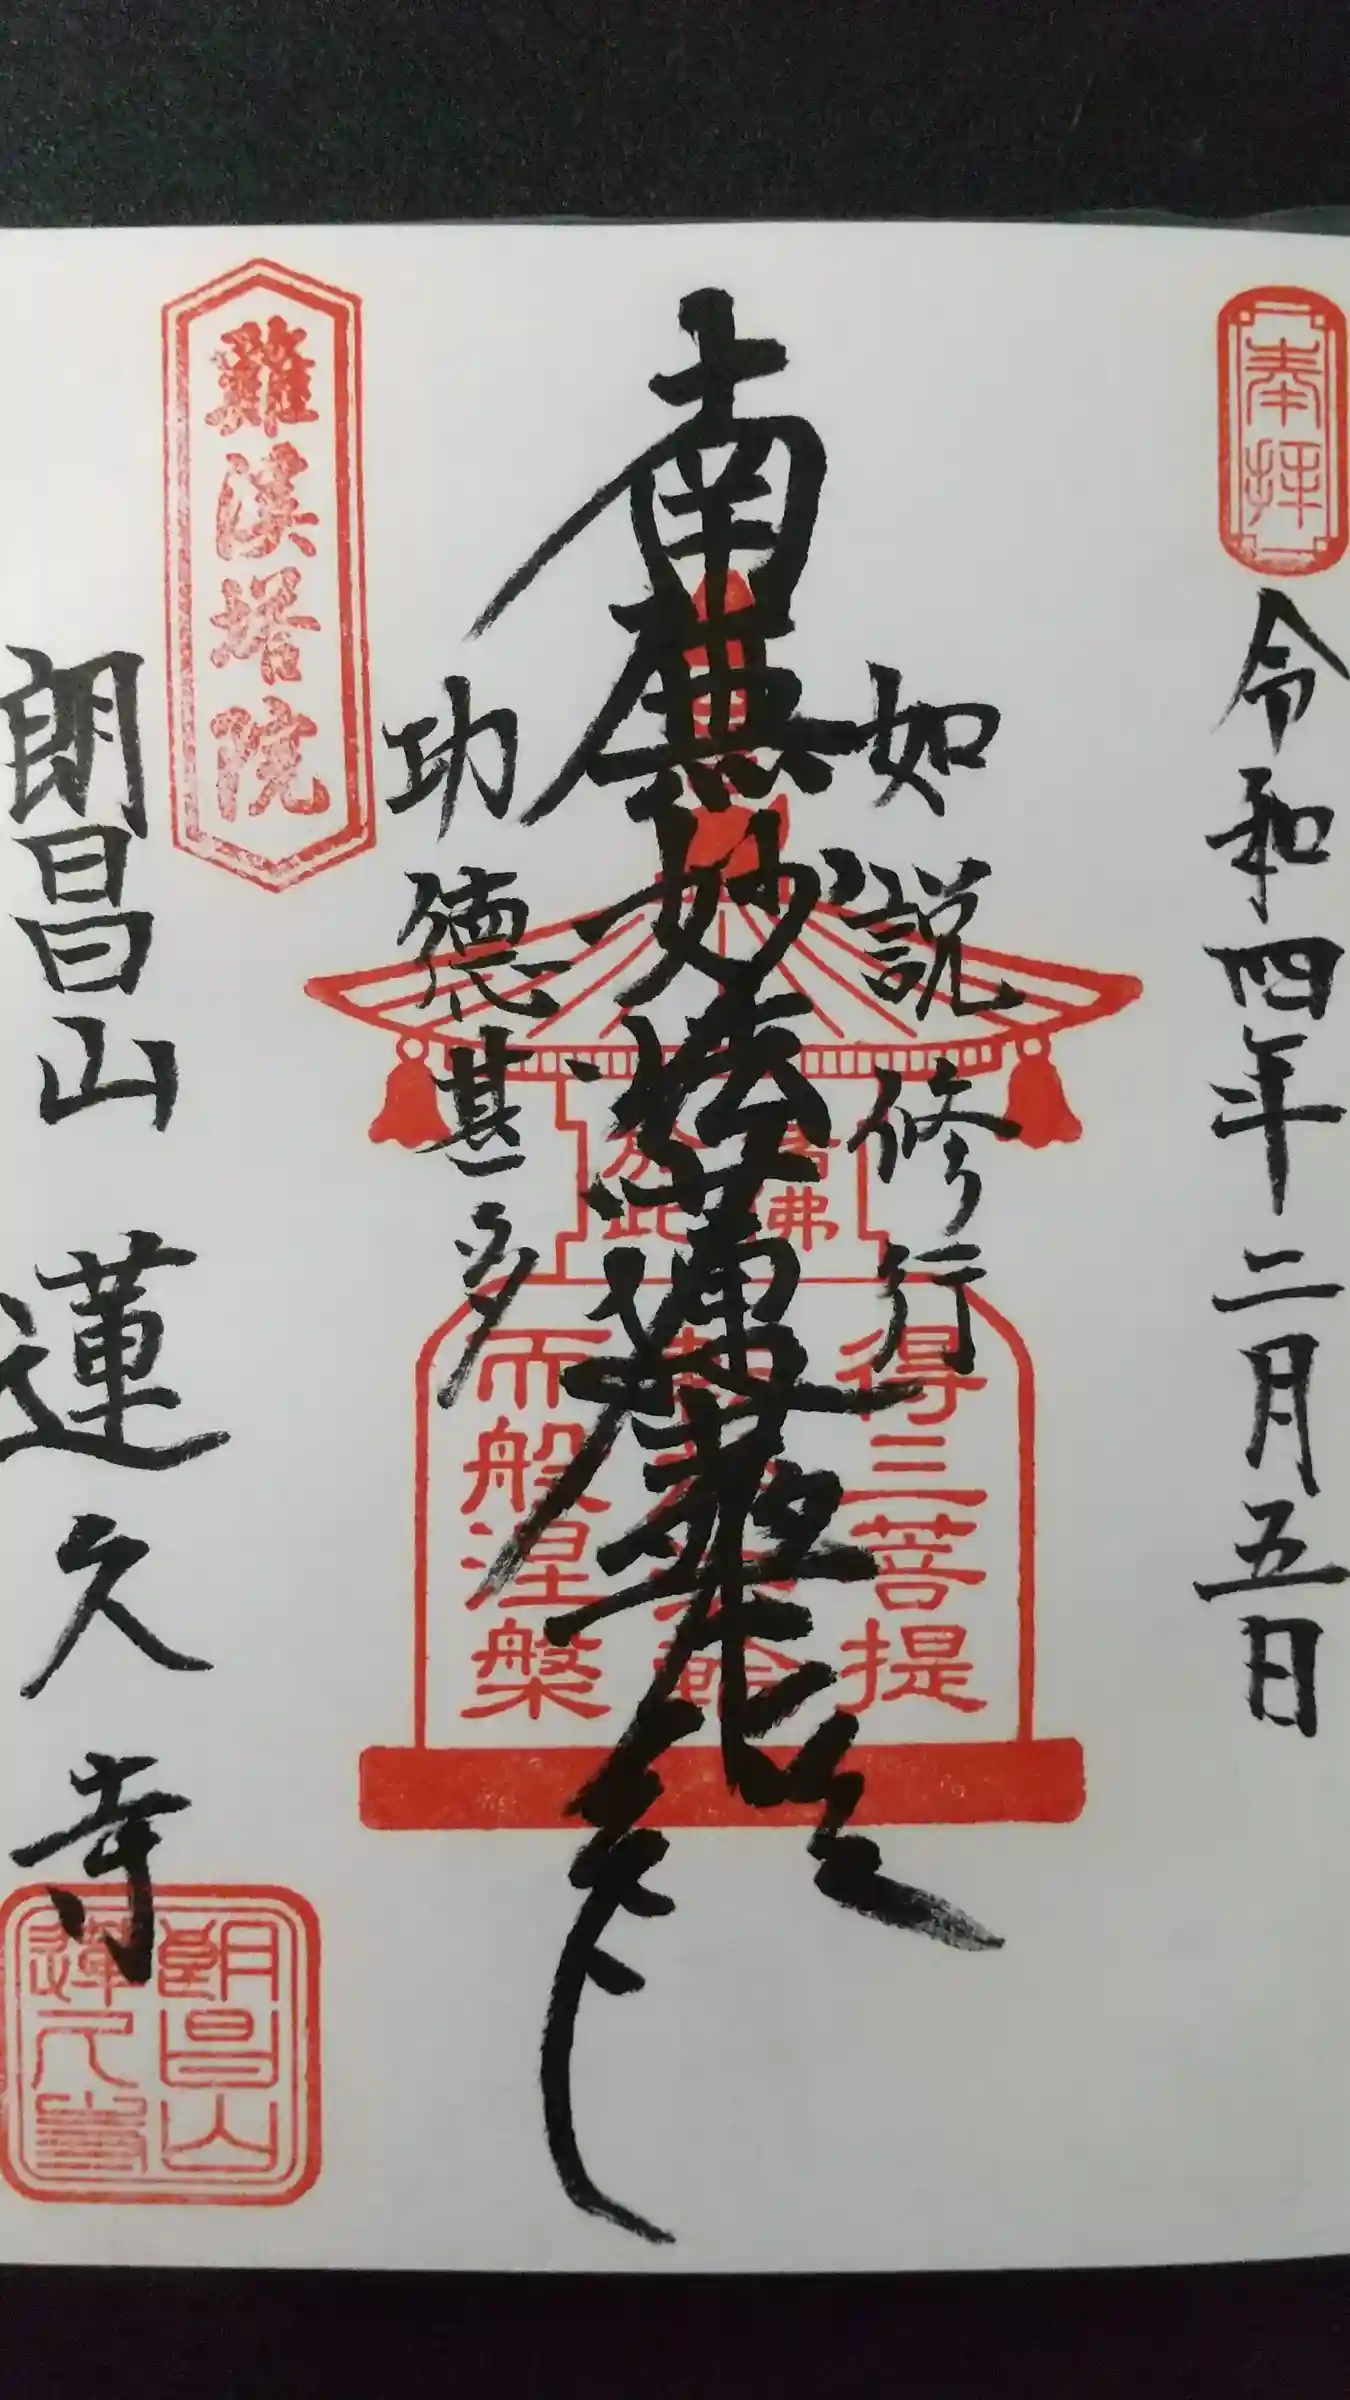 奉拝
令和四年二月五日
如説修行
南無妙法蓮華経
功徳甚多
諸佛
於此
得三菩提
而般涅槃
雞溪塔院
朗昌山 蓮久寺
朗昌山
蓮久寺